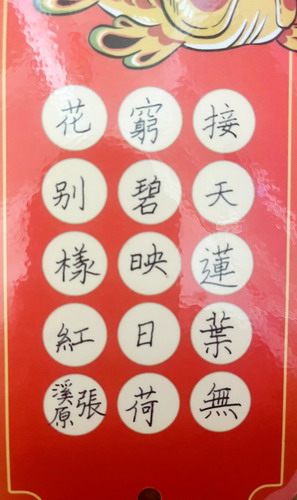 接天蓮葉無
窮碧映日荷
花別樣紅張溪原